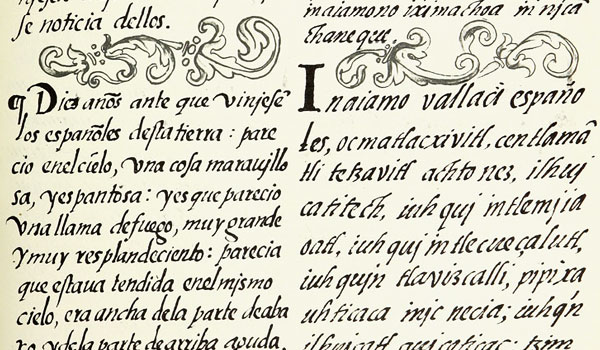 se noticia dellos.
¶ Diez años ante que viniesē
los españoles desta tierra: pare
cio enel cielo, vna cosa maravillo
sa, y espantosa: y es que parecio
vna llama de fuego, muy grande
y muy resplandeciente: parecia
que estaua tendida enel mismo
cielo, era ancha dela parte deaba
xo, y dela parte de arriba, auda,
maiamono iximachoa in nicā
chaneque.
Inaiamo vallaci españo
les, oc matlacxivitl, centlamā
tli tetzavitl achto nez, ilhui
catitech, iuh qui intlemiia
oatl, iuh qui in tlecueçalutl,
iuh quin tlavizcalli, pipixa
uhticaca inic necia; iuhqn
ilhuicatl